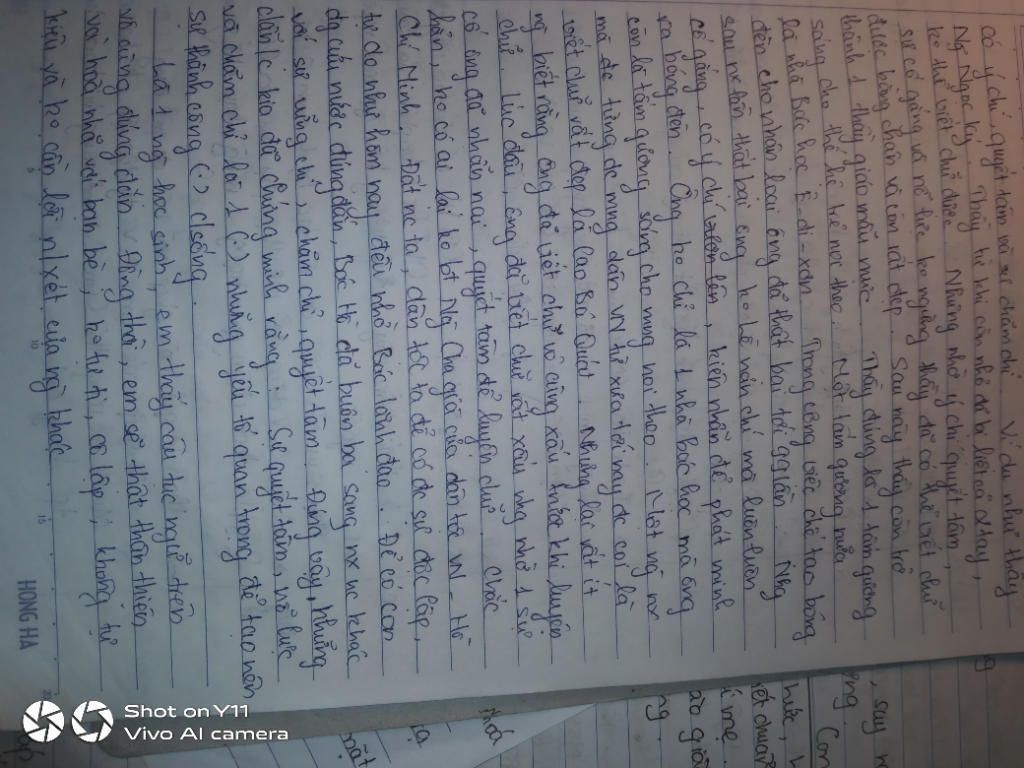 có ý chí, quyết tâm và sự chăm chỉ. Ví dụ như thầy
Ng Ngọc Ký. Thầy từ khi còn nhỏ đc bị liệt cả 2 tay,
ko thể viết chữ được. Nhưng nhờ ý chí quyết tâm,
sự cố gắng và nỗ lực ko ngừng thầy đã có thể viết chữ
được bằng chân và còn rất đẹp. Sau này thầy còn trở
thành 1 thầy giáo mẫu mực. Thầy đúng là 1 tấm gương
sáng cho thế hệ trẻ noi theo. Một tấm gương nữa
là nhà bác học Ê-đi-xơn. Trong công việc chế tạo bóng
đèn cho nhân loại ông đã thất bại tới gần lần. Nhg
sau mỗi lần thất bại ông ko hề nản chí mà luôn luôn
cố gắng, có ý chí vươn lên, kiên nhẫn để phát minh
ra bóng đèn. Ông ko chỉ là 1 nhà bác học mà ông
còn là tấm gương sáng cho mng noi theo. Một ng nx
mà đc từng đc mng dân VN từ xưa tới nay đc coi là
viết chữ rất đẹp là Cao Bá Quát. Nhưng lại rất ít
ng biết rằng ông đã viết chữ vô cùng xấu trước khi luyện
chữ. Lúc đầu, ông đã viết chữ rất xấu nhg nhờ 1 sự
cố ông đã nhẫn nại, quyết tâm để luyện chữ. Chắc
hẳn, ko có ai lại ko bt Ng Cha già của dân tộc VN - Hồ
Chí Minh. Đất nc ta, dân tộc ta để có đc sự độc lập,
tự do như hôm nay đều nhờ Bác lãnh đạo. Để có con
đg cứu nước đúng đắn, Bác Hồ đã buôn ba sang nx nc khác
với sự vững chí, chăm chỉ, quyết tâm. Đúng vậy, những
dẫn/c kia đã chứng minh rằng. Sự quyết tâm, nỗ lực
và chăm chỉ là 1 (.) những yếu tố quan trọng để tạo nên
sự thành công (.) c/sống.
Là 1 ng học sinh, em thấy câu tục ngữ trên
vô cùng đúng đắn. Đồng thời, em sẽ thật thân thiện
và hòa nhã với bạn bè, ko tự ti, cô lập, không tự
kiêu và ko cần lời n/xét của ng khác
HONG HA
Shot on Y11
Vivo AI camera